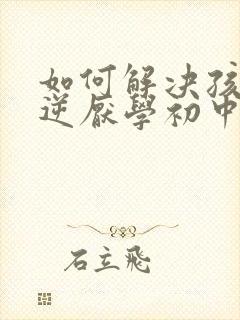 如何解决孩
逆厌學初中
石立飛